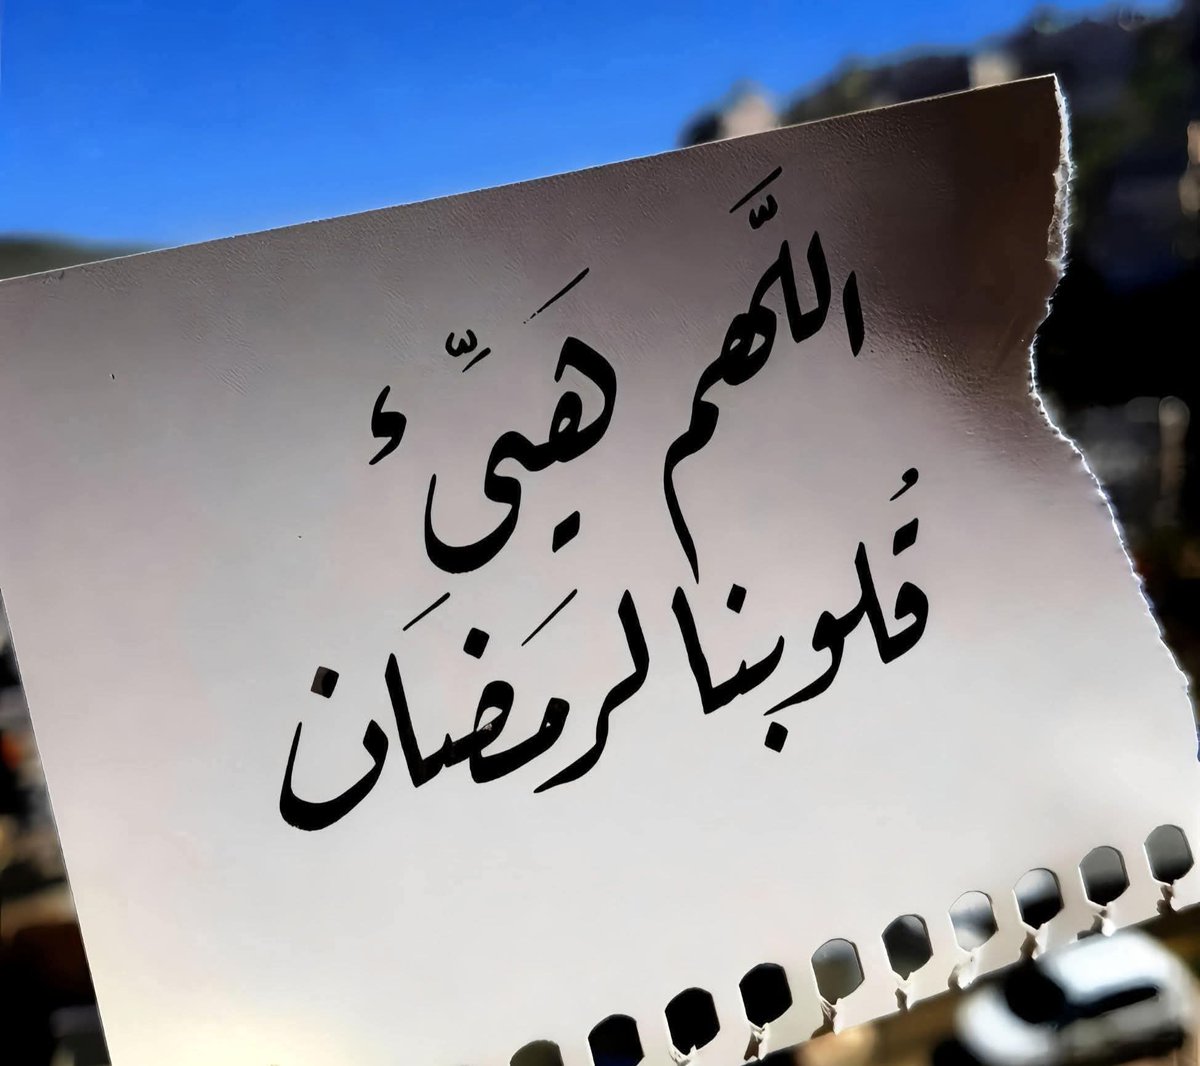 اللَّهم هَيِّىء
قُلوبنا لرمَضَان